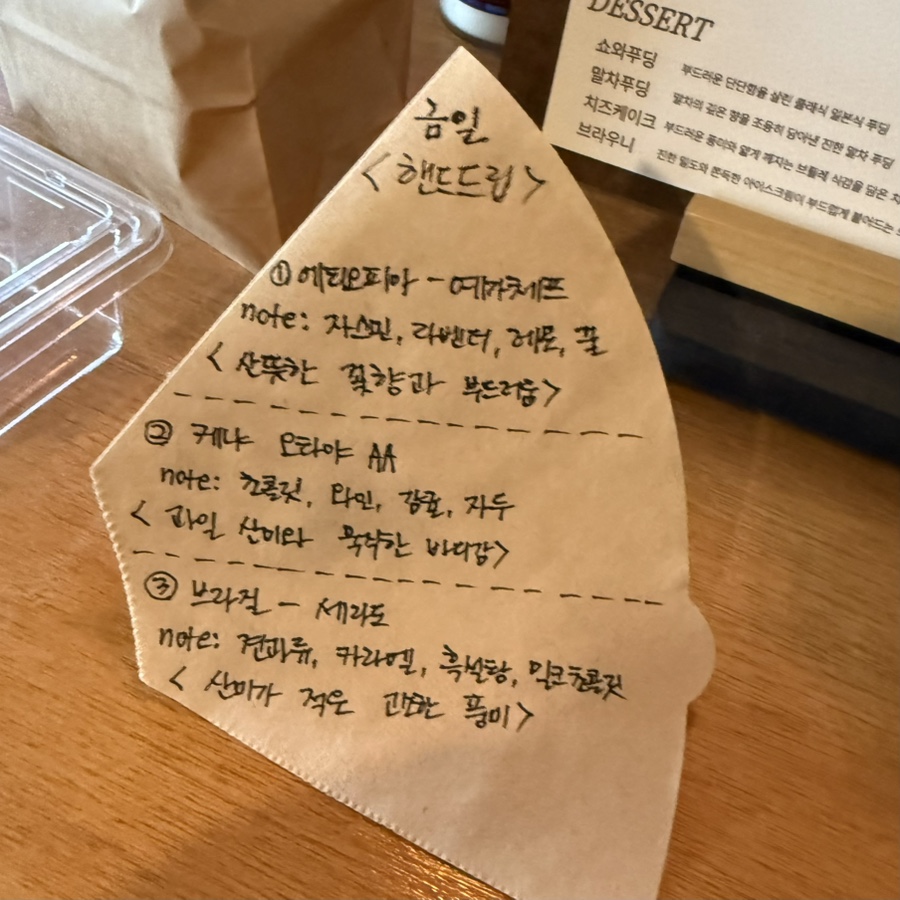 금일
<핸드드립>
① 에티오피아 - 예가체프
note: 자스민, 라벤더, 레몬, 꿀
<산뜻한 꽃향과 부드러움>
② 케냐 오타야 AA
note: 초콜릿, 와인, 감귤, 자두
<과일 산미와 묵직한 바디감>
③ 브라질 - 세라도
note: 견과류, 카라멜, 흑설탕, 밀크초콜릿
<산미가 적은 강한 풍미>
DESSERT
쇼와푸딩 부드러운 단단함을 살린 클래식 일본식 푸딩
말차푸딩 말차의 깊은 향을 조용히 담아낸 진한 말차 푸딩
치즈케이크 부드러운 풍미와 얇게 깨지는 브륄레 식감을 담은
브라우니 진한 밀도와 쫀득한 아이스크림이 부드럽게 녹아드는